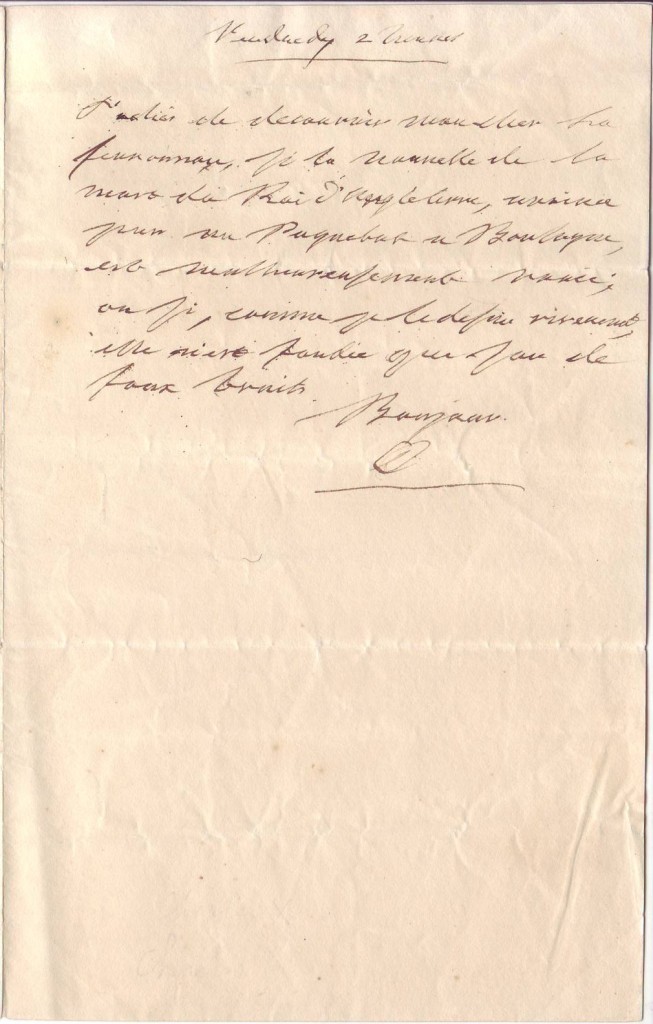 Vendredy 2 heures
Tachés de découvrir mon cher La
ferronnay, si la nouvelle de la
mort du Roi d'Angleterre, arrivée
par un Paquebot a Boulogne,
est malheureusement vraie;
ou si, comme je le desire vivement,
elle n'est fondée que sur de
faux bruits.
Bonjour.